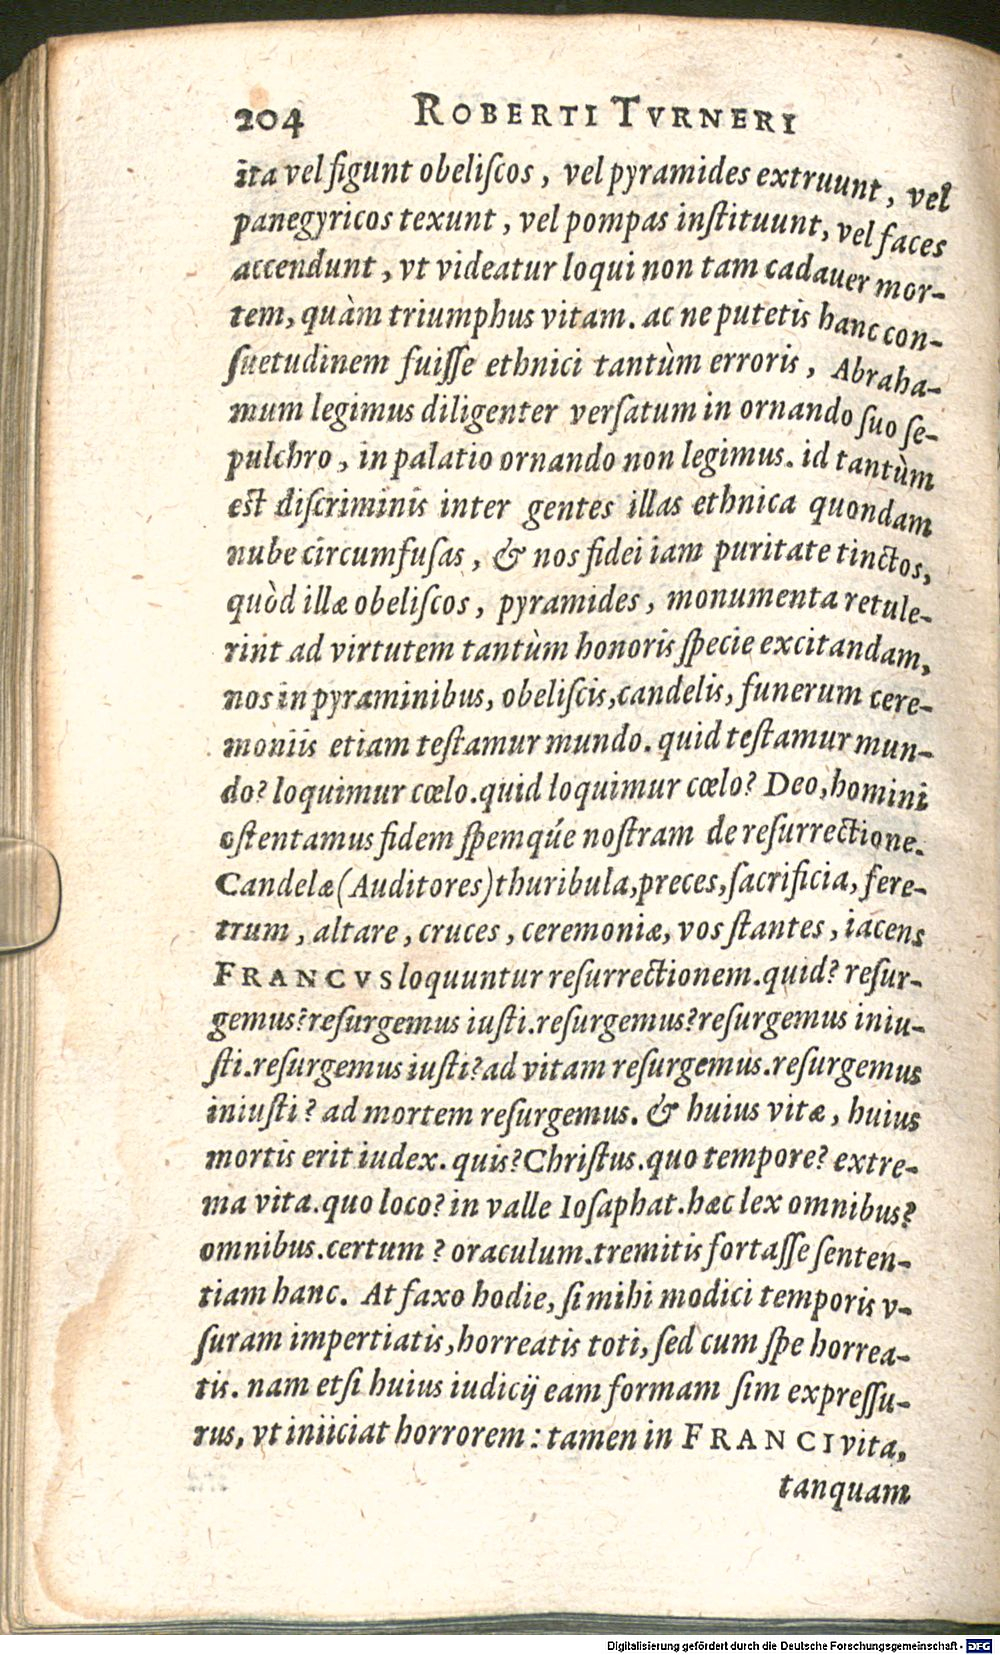 204 ROBERTI TVRNERI
ita vel figunt obeliſcos, vel pyramides extruunt, vel
panegyricos texunt, vel pompas inſtituunt, vel faces
accendunt, vt videatur loqui non tam cadauer mor-
tem, quàm triumphus vitam. ac ne putetis hanc con-
ſuetudinem fuiſſe ethnici tantùm erroris, Abraha-
mum legimus diligenter verſatum in ornando ſuo ſe-
pulchro, in palatio ornando non legimus. id tantùm
eſt diſcriminis inter gentes illas ethnica quondam
nube circumfuſas, & nos fidei iam puritate tinctos,
quòd illæ obeliſcos, pyramides, monumenta retule-
rint ad virtutem tantùm honoris ſpecie excitandam,
nos in pyraminibus, obeliſcis, candelis, funerum cere-
moniis etiam teſtamur mundo. quid teſtamur mun-
do? loquimur cœlo. quid loquimur cœlo? Deo, homini
oſtentamus fidem ſpemq́ue noſtram de reſurrectione.
Candelæ (Auditores) thuribula, preces, ſacrificia, fere-
trum, altare, cruces, ceremoniæ, vos ſtantes, iacens
FRANCVS loquuntur reſurrectionem. quid? reſur-
gemus? reſurgemus iuſti. reſurgemus? reſurgemus iniu-
ſti. reſurgemus iuſti? ad vitam reſurgemus. reſurgemus
iniuſti? ad mortem reſurgemus. & huius vitæ, huius
mortis erit iudex. quis? Chriſtus. quo tempore? extre-
ma vita. quo loco? in valle Ioſaphat. hæc lex omnibus?
omnibus. certum? oraculum. tremitis fortaſſe ſenten-
tiam hanc. At faxo hodie, ſi mihi modici temporis v-
ſuram impertiatis, horreatis toti, ſed cum ſpe horrea-
tis. nam etſi huius iudicij eam formam ſim expreſſu-
rus, vt iniiciat horrorem: tamen in FRANCI vita,
tanquam
Digitalisierung gefördert durch die Deutsche Forschungsgemeinschaft - DFG